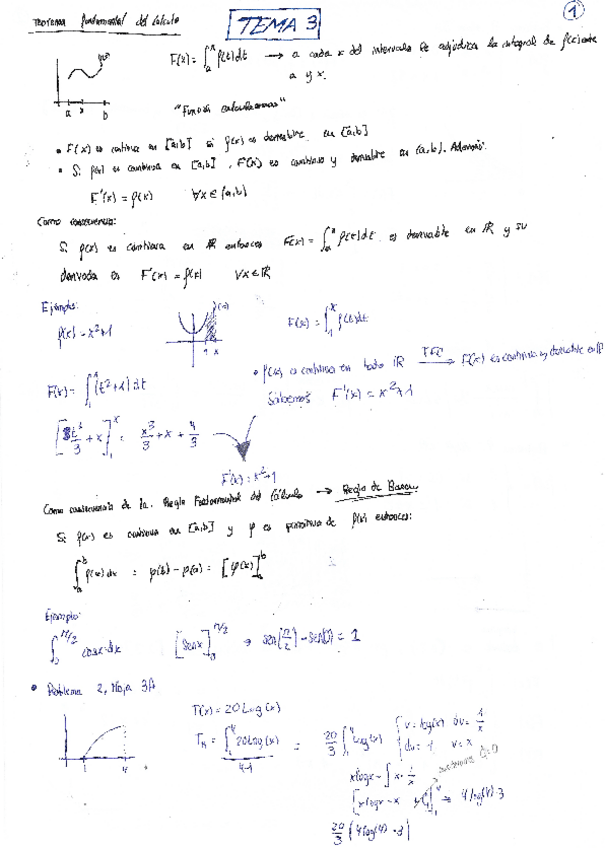 Teorema fundamental del Cálculo
TEMA 3
1
F(x) = ∫ₐˣ f(t)dt → a cada x del intervalo se adjudica la integral de f(x) entre
a y x.
a x b
"Función calculadora"
• F(x) es continua en [a,b] si f(x) es derivable en [a,b]
• Si f(x) es continua en [a,b], F(x) es continua y derivable en (a,b). Además:
F'(x) = f(x) ∀x∈(a,b)
Como consecuencia:
Si f(x) es continua en ℝ entonces F(x) = ∫ₐˣ f(t)dt es derivable en ℝ y su
derivada es F'(x) = f(x) ∀x∈ℝ
Ejemplo:
f(x) = x²+1
1 x
F(x) = ∫₁ˣ f(t)dt
• f(x) es continua en todo ℝ TFC → F(x) es continua y derivable en ℝ
F(x) = ∫₁ˣ (t²+1)dt
Sabemos F'(x) = x²+1
[t³/3 + x]₁ˣ = x³/3 + x + 4/3
F'(x) = x²+1
Como consecuencia de la Regla Fundamental del Cálculo → Regla de Barrow
Si f(x) es continua en [a,b] y φ es primitiva de f(x) entonces:
∫ₐᵇ f(x)dx = φ(b) - φ(a) = [φ(x)]ₐᵇ
Ejemplo:
∫₀^(π/2) cosx·dx [senx]₀^(π/2) → sen(π/2) - sen(0) = 1
• Problema 2, Hoja 3A
T(x) = 20 Log(x)
1 4
Tₘ = ∫₁⁴ 20Log(x) / 4-1 = 20/3 ∫₁⁴ Log(x) { u = log(x) du = 1/x
dv = 1 v = x
xlogx - ∫ x·1/x
[xlogx - x]₁⁴ → 4 log(4) - 3
20/3 (4log(4) - 3)